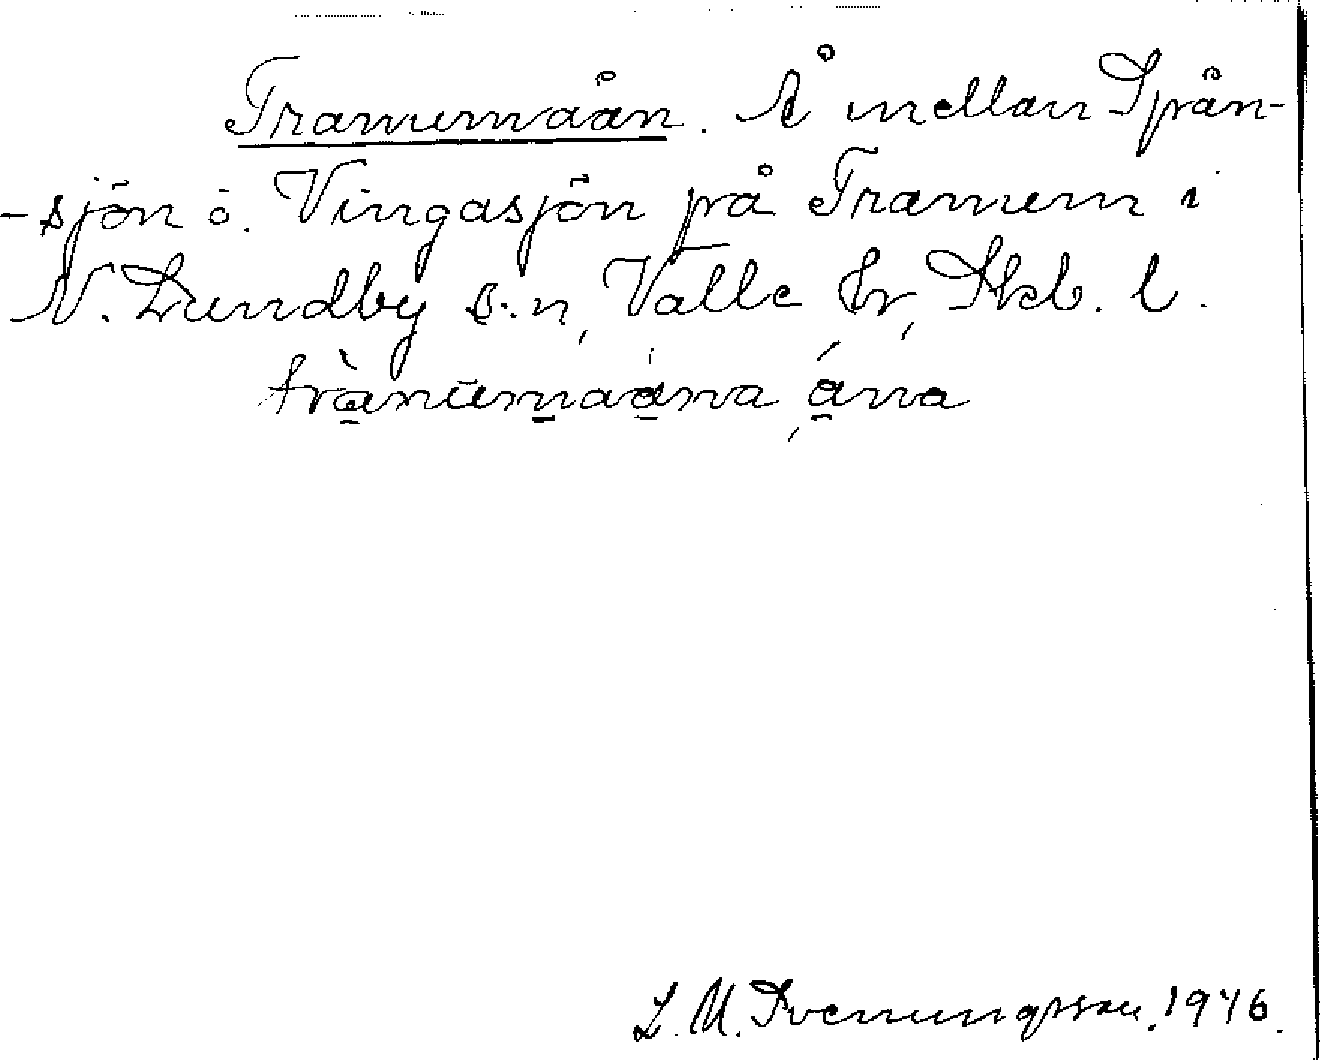 Tranumaån. Å mellan Spån-
-sjön o. Vingasjön på Tranum i
N. Lundby s:n, Valle hr, Skb. l.
trànumaána, ána
L. M. Svenungsson. 1946.